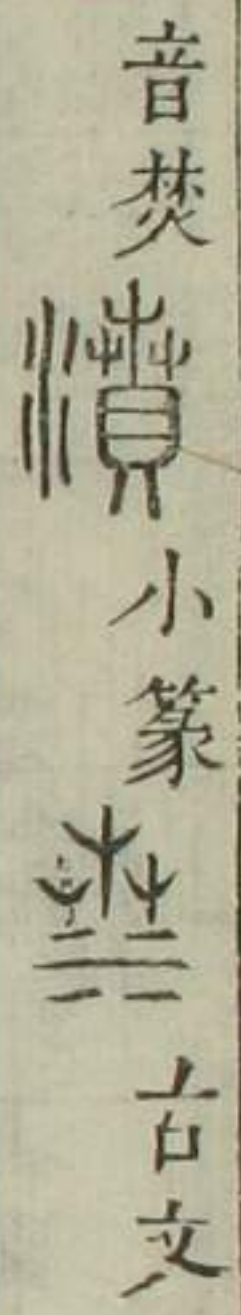 音焚濆小篆古文